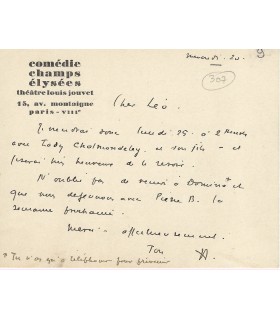 mercredi. 20.
9
307
comédie
champs
élysées
théâtre louis jouvet
15, av. montaigne
paris-VIIIe
Cher Léo.
Je viendrai donc lundi 25. à 2 heures
avec Lady Cholmondeley et son fils - et
serai très heureux de le revoir.
N'oublie pas de venir à Domino et
que nous déjeunons avec Pierre B. la
semaine prochaine.
Merci - affectueusement.
Ton
* Tu n'as qu'à téléphoner pour prévenir